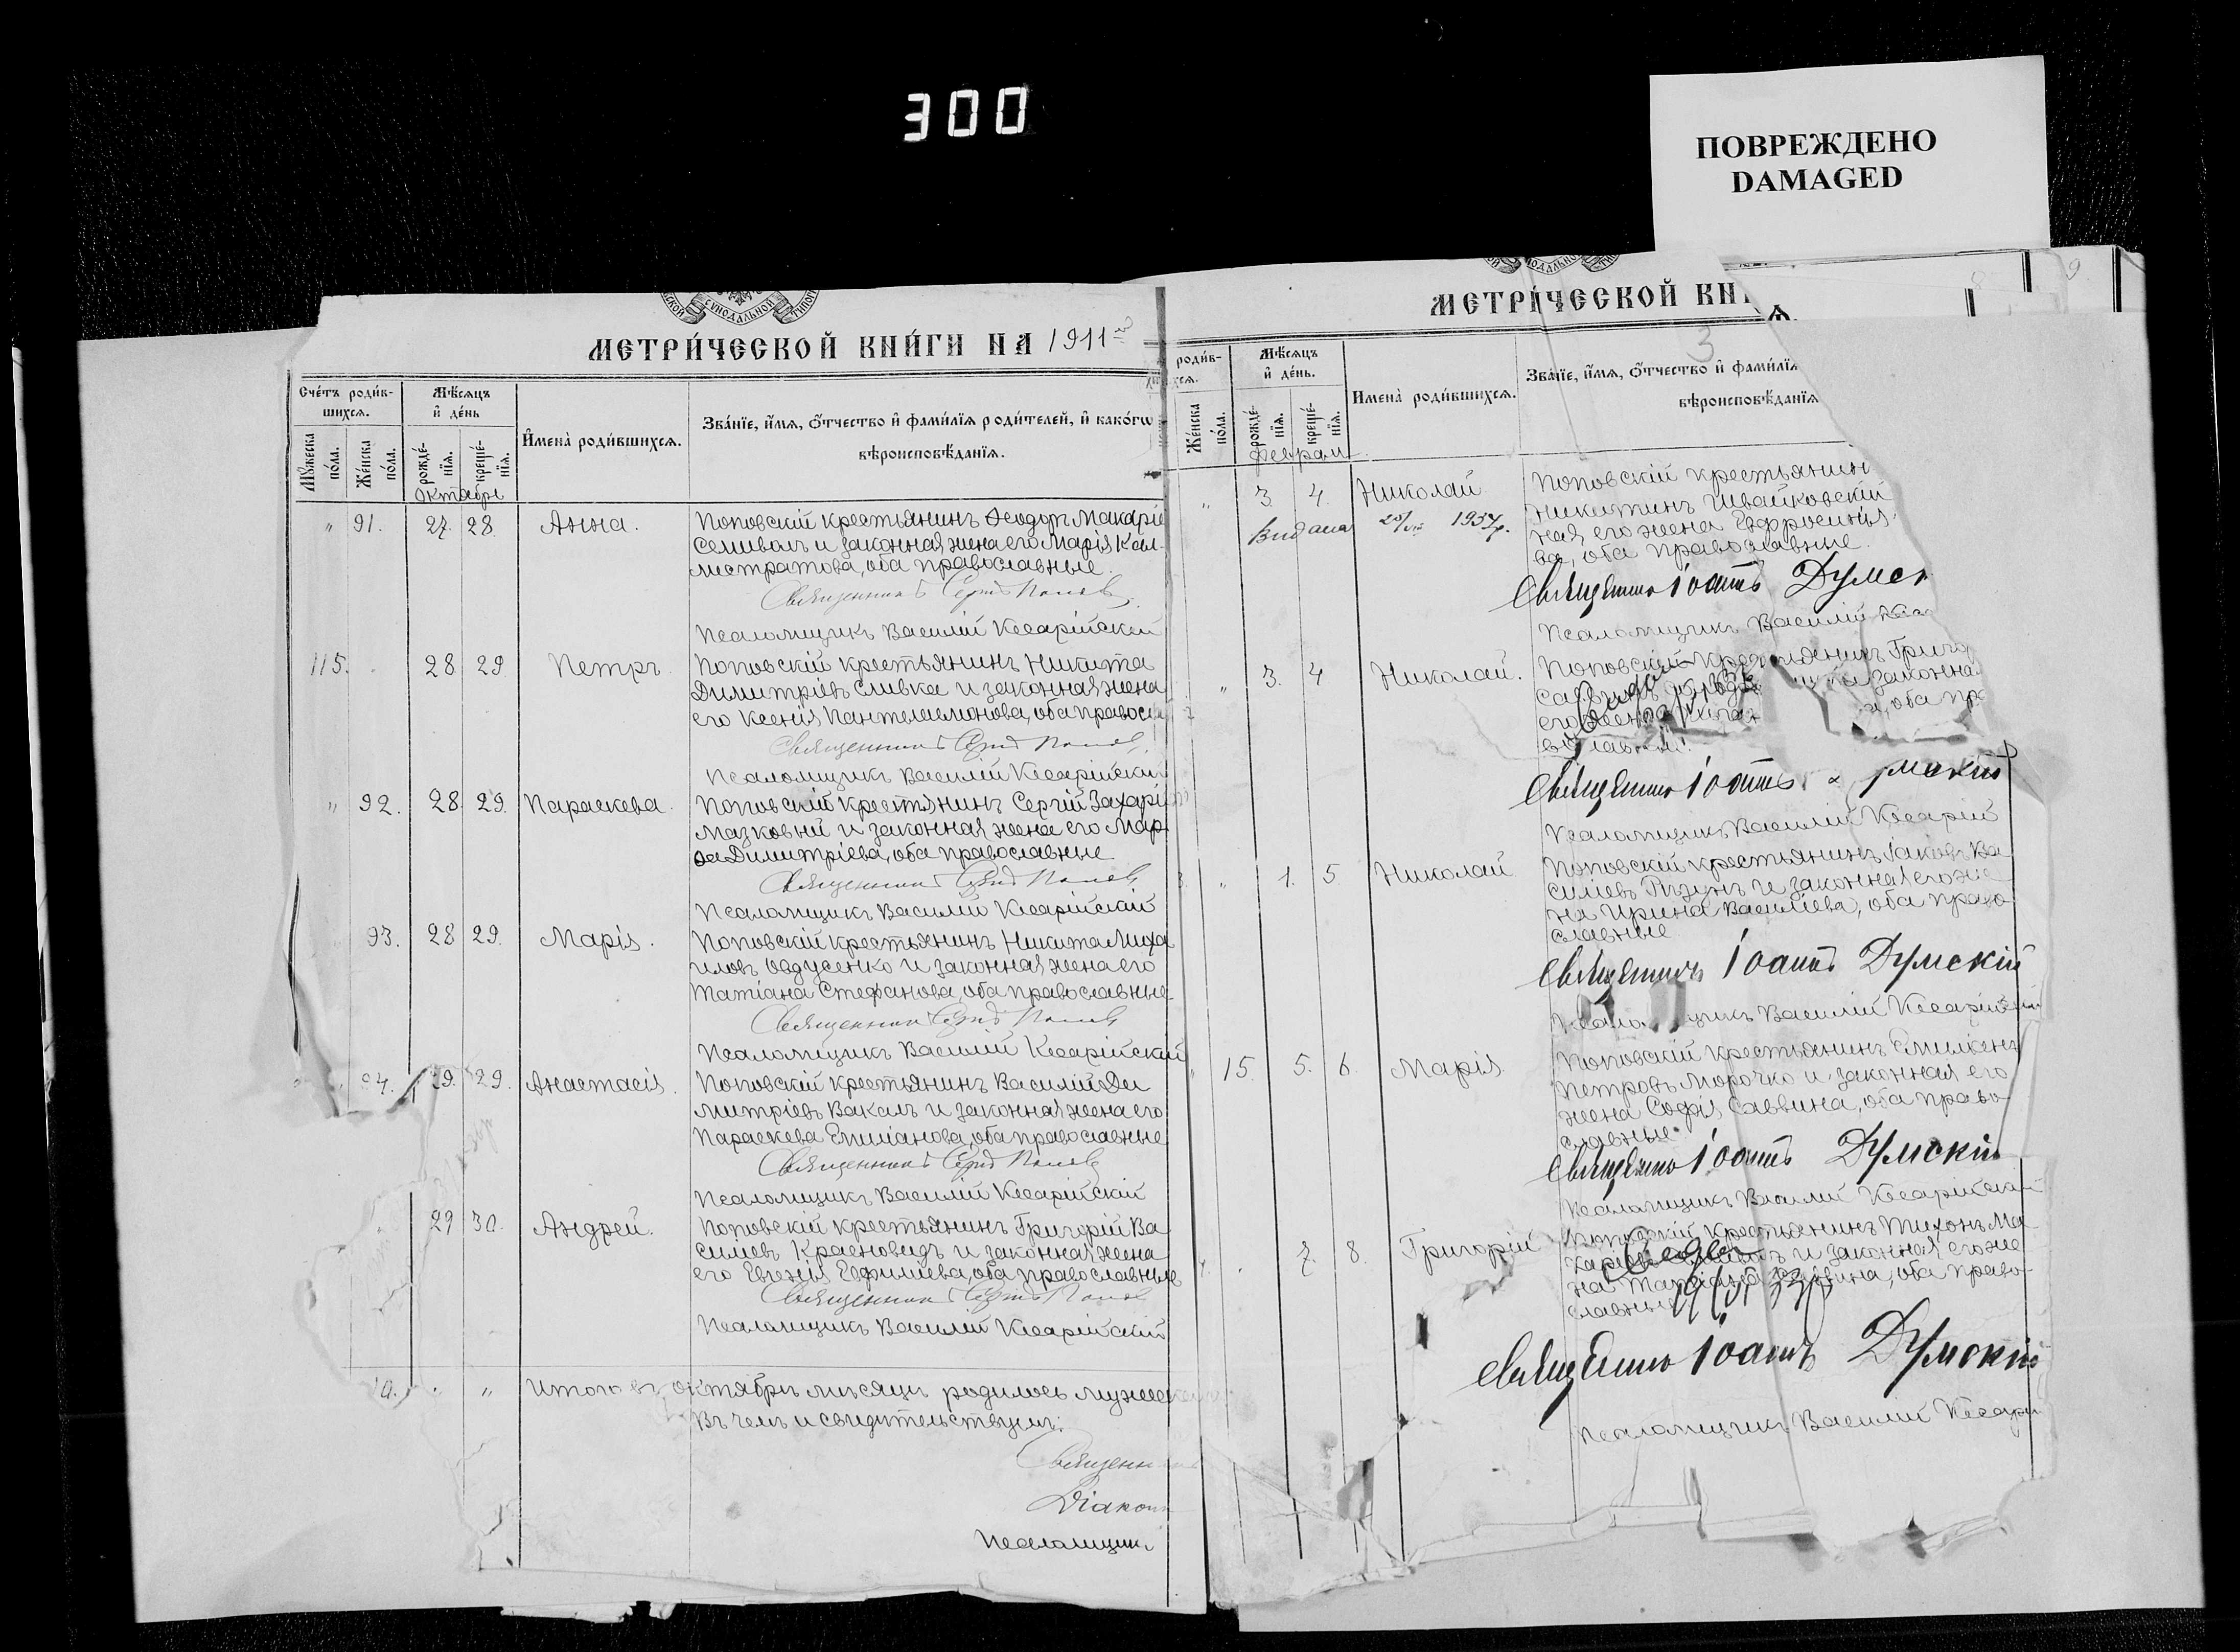 300
ПОВРЕЖДЕНО
DAMAGED
МЕТРИ́ЧЕСКОЙ КНИ́ГИ НА 1911
Сче́тъ роди́в-
шихся.
Мѣ́сяцъ
и҆ де́нь
Мꙋ́жеска
по́ла.
Же́нска
по́ла.
рожде́-
нїѧ.
креще́-
нїѧ.
И҆мена̀ роди́вшихсѧ.
Зва́нїе, и҆́мѧ, ѻ҆́тчество и҆ фами́лїѧ роди́телей, и҆ како́гѡ
вѣроисповѣ́данїѧ.
Октябрь
" 91. 27. 28. Анна. Поповскій крестьянинъ Ѳеодоръ Макаріе
Семиволъ и законная жена его Марія Кал-
листратова, оба православные.
Священникъ
Псаломщикъ Василій Кесарійскій
115. 28 29 Петръ Поповскій крестьянинъ Никита
Димитріевъ Сливка и законная жена
его Ксенія Пантелеимонова, оба правосл
Священникъ
Псаломщикъ Василій Кесарійскій
" 92. 28. 29. Параскева. Поповскій крестьянинъ Сергій Захарі
Мазковый и законная жена его Мар
ѳа Димитріева, оба православные
Священникъ
Псаломщикъ Василій Кесарійскій
93. 28 29. Марія. Поповскій крестьянинъ Никита Миха
иловъ Овдусенко и законная жена его
Татіана Стефанова, оба православные
Священникъ
Псаломщикъ Василій Кесарійскій
94. 29. 29. Анастасія. Поповскій крестьянинъ Василій Ди
митріевъ Вакалъ и законная жена его
Параскева Емиліанова, оба православные
Священникъ
Псаломщикъ Василій Кесарійскій
29 30. Андрей. Поповскій крестьянинъ Григорій Ва
силіевъ Красновидъ и законная жена
его Евгенія Евфиміева, оба православные
Священникъ
Псаломщикъ Василій Кесарійскій
Итого въ октябрѣ мѣсяцѣ родилось мужеска
Въ чемъ и свидѣтельствуемъ:
Священн
Діаконъ
Псаломщикъ
МЕТРИ́ЧЕСКОЙ КНИ
роди́в-
хсѧ.
Мѣ́сяцъ
и҆ де́нь.
Же́нска
по́ла.
рожде́-
нїѧ.
креще́-
нїѧ.
И҆мена̀ роди́вшихсѧ.
Зва́нїе, и҆́мѧ, ѻ҆́тчество и҆ фами́лїѧ
вѣроисповѣ́данїѧ
Феврал
" 3 4. Николай Поповскій крестьянин
Никитинъ Швайковскій
Видана 1937р. ная его жена Евфросинія
ва, оба православные.
Священникъ Іоаннъ Думск
Псаломщикъ Василій Кес
" 3. 4 Николай. Поповскій крестьянинъ Григо
законна
оба пр
Священникъ Іоаннъ
Псаломщикъ Василій Кесарій
" 1. 5. Николай Поповскій крестьянинъ Іаковъ Ва
силіевъ Тизунъ и законная его же
на Ирина Василіева, оба право
славные
Священникъ Іоаннъ Думскій
Василій Кесарійскій
15. 5. 6. Марія Поповскій крестьянинъ
Петровъ Морочко и законная его
жена Софія Саввина, оба право-
славные.
Священникъ Іоаннъ Думскій
Псаломщикъ Василій Кесарійскій
7. 8. Григорій Поповскій крестьянинъ Тихонъ Ма
и законная его же
на оба право-
славные
Священникъ Іоаннъ Думскій
Псаломщикъ Василій Кесарій